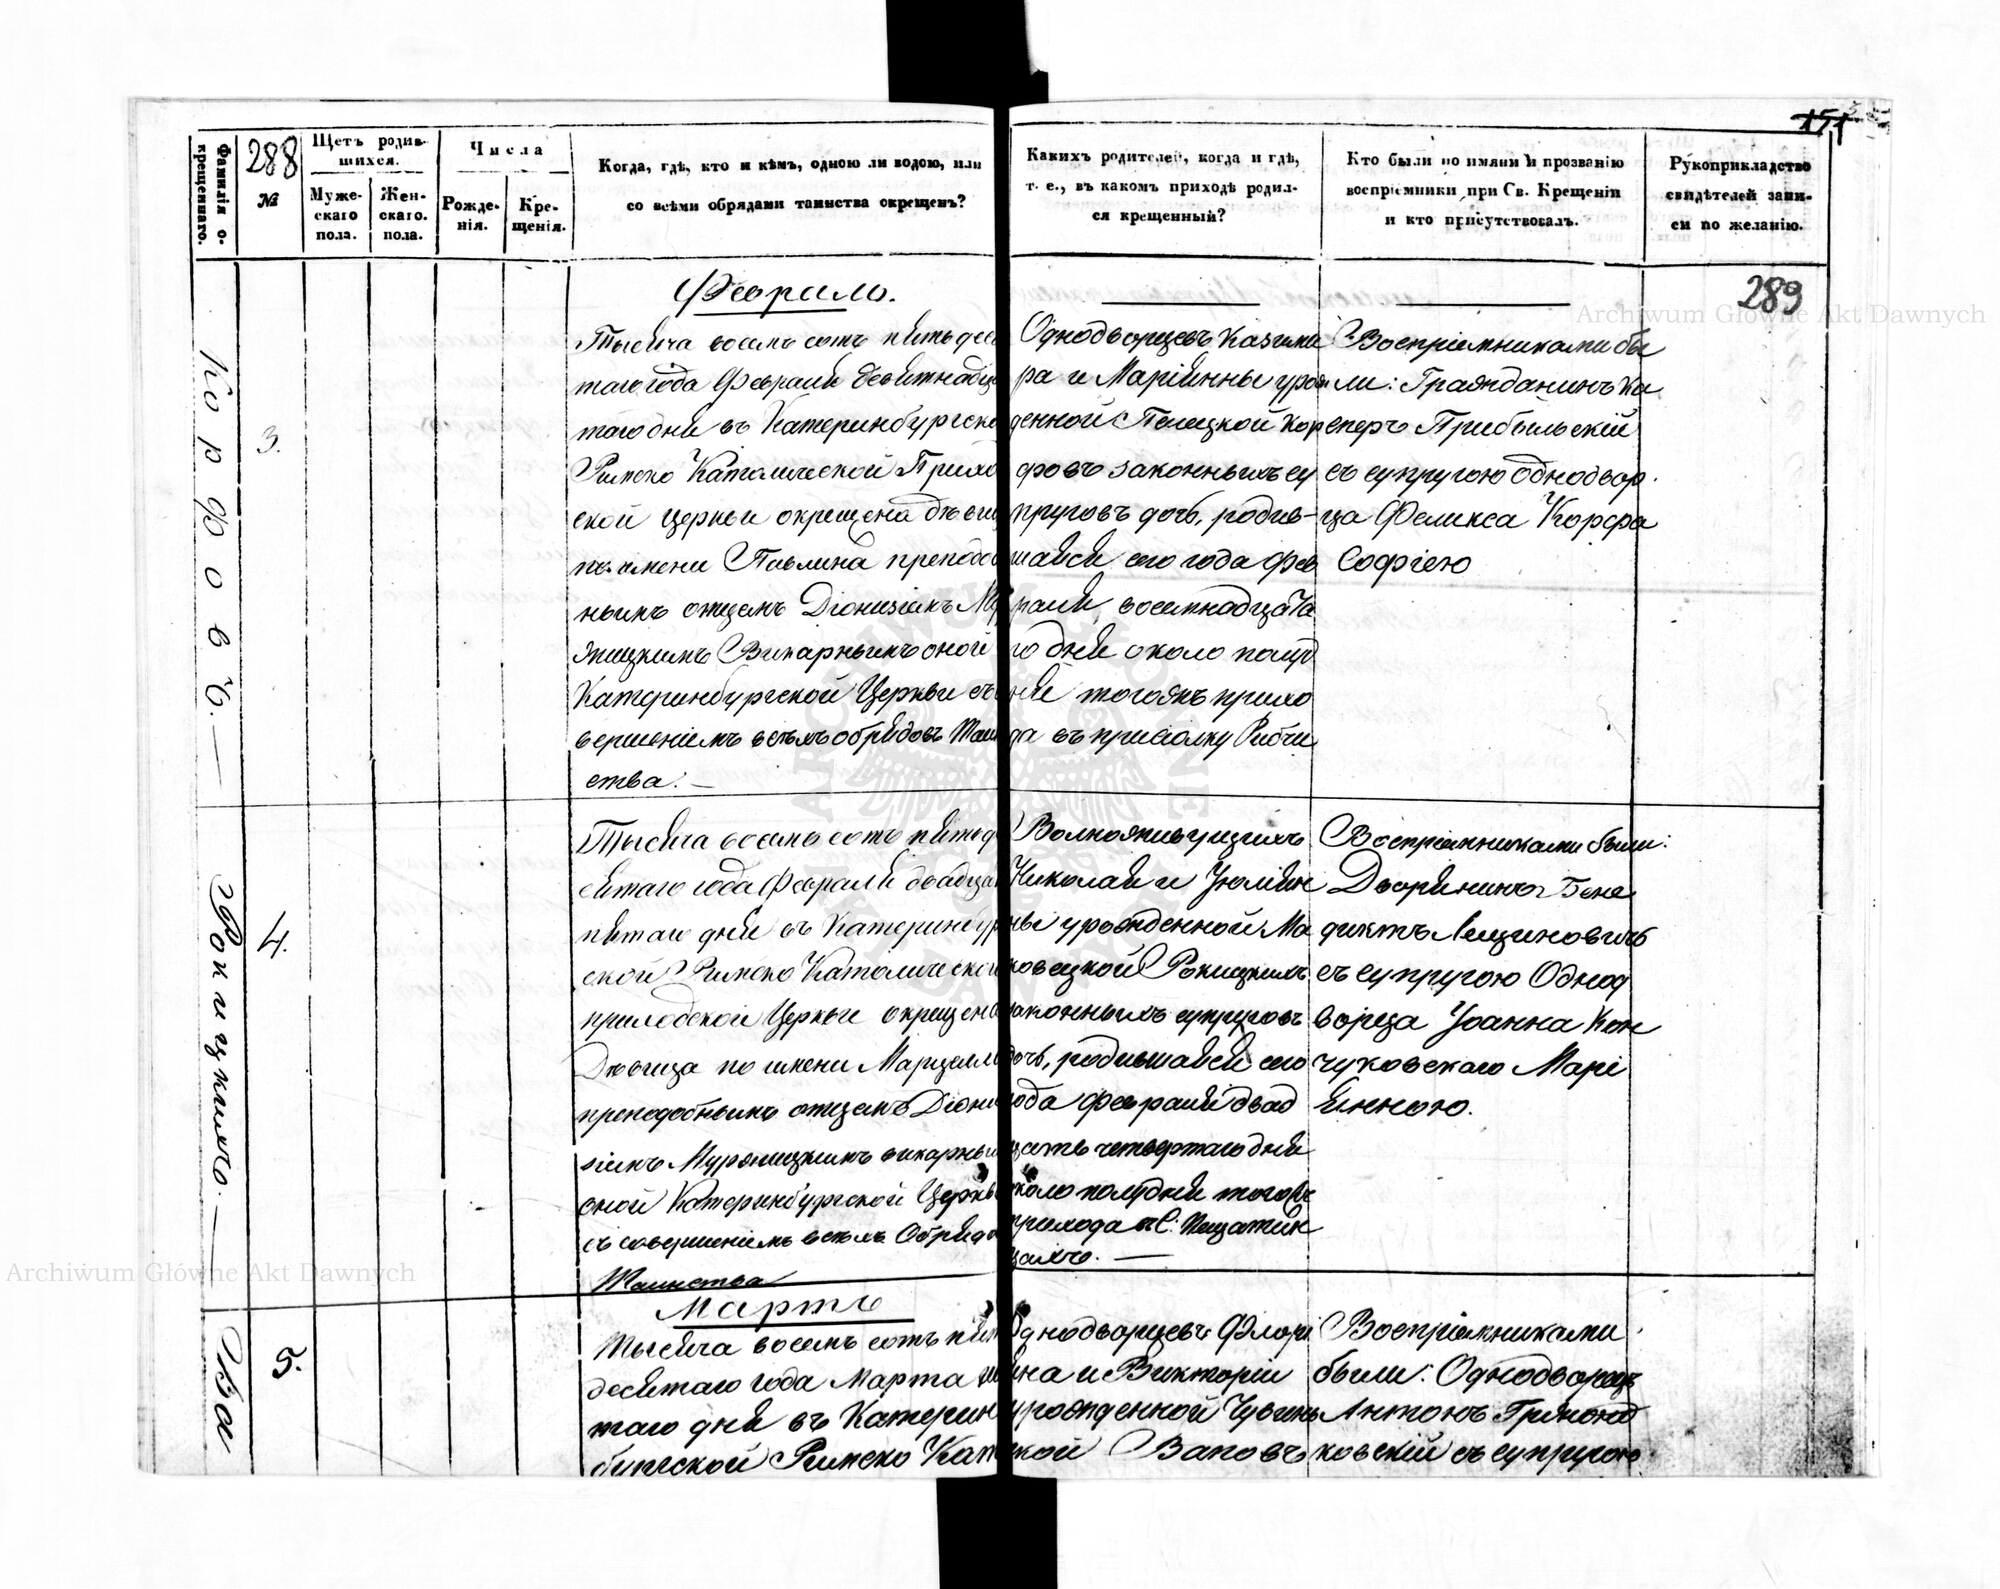 151
288
289
Фамилія о-
крещеннаго.
№
Щетъ родив-
шихся.
Муже-
скаго
пола.
Жен-
скаго.
пола.
Числа
Рожде-
нія.
Кре-
щенія.
Когда, гдѣ, кто и кѣмъ, одною ли водою, или
со всѣми обрядами таинства окрещенъ?
Какихъ родителей, когда и гдѣ,
т. е., въ какомъ приходѣ родил-
ся крещенный?
Кто были по имяни и прозванію
воспріемники при Св. Крещеніи
и кто присутствовалъ.
Рукоприкладство
свидѣтелей запи-
си по желанію.
Февраль.
Корфовъ.
3.
Тысяча восемь сотъ пятьдеся
таго года Февраля девятнадца
таго дня въ Катеринбургско
Римско Католической Прихо
ской церкви окрещена дѣвица
по имени Павлина преподоб
нымъ отцемъ Діонизіемъ Му
жицкимъ Викарнымъ оной
Катеринбургской Церкви съ
вершеніемъ всѣхъ обрядовъ Таин
ства.
Однодворцевъ Казими
ра и Маріянны урож
денной Пелецкой Кор
фовъ законныхъ су
пруговъ дочь, родив-
шаяся сего года фев
раля восемнадцата
го дня около полуд
ня тогожъ прихо
да въ присіолку Рибчи
Воспріемниками бы
ли: Гражданинъ Ка
сперъ Прибыльскій
съ супругою однодвор
ца Феликса Корфа
Софіею
Рокицкихъ.
4.
Тысяча восемь сотъ пятьде
сятаго года Февраля двадцат
пятаго дня въ Катеринбур
ской Римско Католической
приходской Церкви окрещена
Дѣвица по имени Марцелла
преподобнымъ отцемъ Діони
зіемъ Муражицкимъ викарны
оной Катеринбургской Церкви
съ совершеніемъ всѣхъ Обрядо
Таинства
Вольноживущихъ
Николая и Юліян
ны урожденной Ма
ковецкой Рокицкихъ
законныхъ супруговъ
дочь, родившаяся сего
года февраля двад
цать четвертаго дня
около полудня тогожъ
прихода въ С: Пещатин
цахъ.
Воспріемниками были:
Дворянинъ Бене
диктъ Лещиновичъ
съ супругою Однод
ворца Іоанна Кон
чуковскаго Марі
янною.
Мартъ
Ва
5.
Тысяча восемь сотъ пят
десятаго года Марта
таго дня въ Катерин
бургской Римско Кат
Однодворцевъ Флорі
яна и Викторіи
урожденной
ской Ваповъ
Воспріемниками
были: Однодворецъ
Антонъ
ковскій съ супругою
Archiwum Główne Akt Dawnych
Archiwum Główne Akt Dawnych
ARCHIWUM GŁÓWNE AKT DAWNYCH